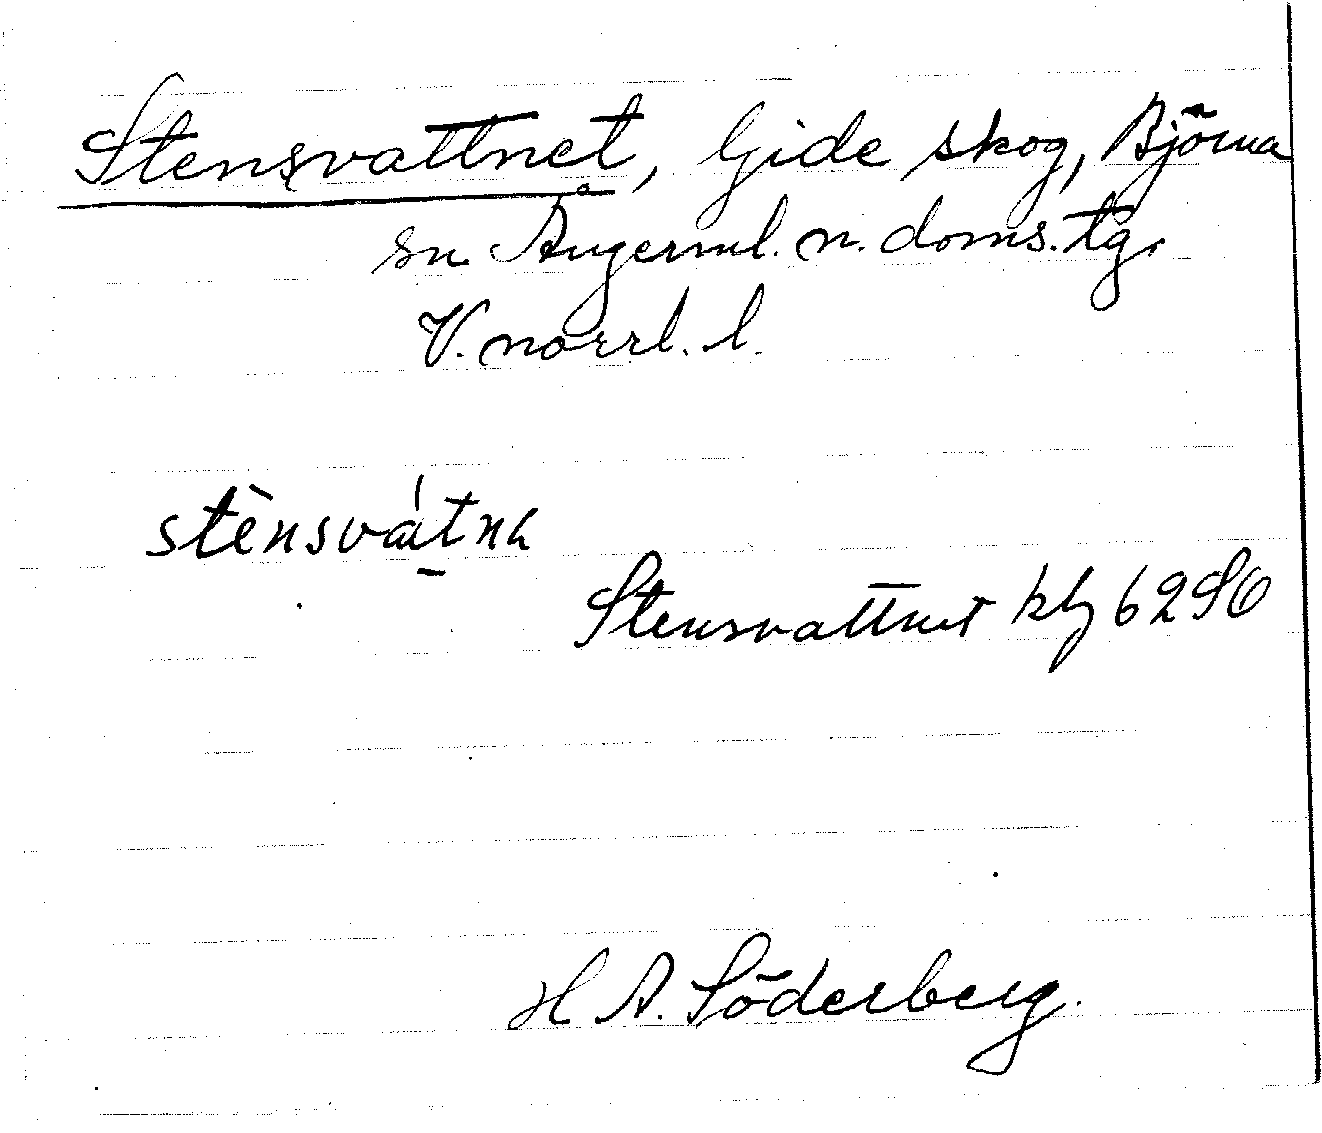 Stensvattnet, Gide skog, Björna
sn. Ångerml. n. doms. tg.
V. norrl. l.
stènsvátna
Stensvattnet klj 62 SO
H A. Söderberg.